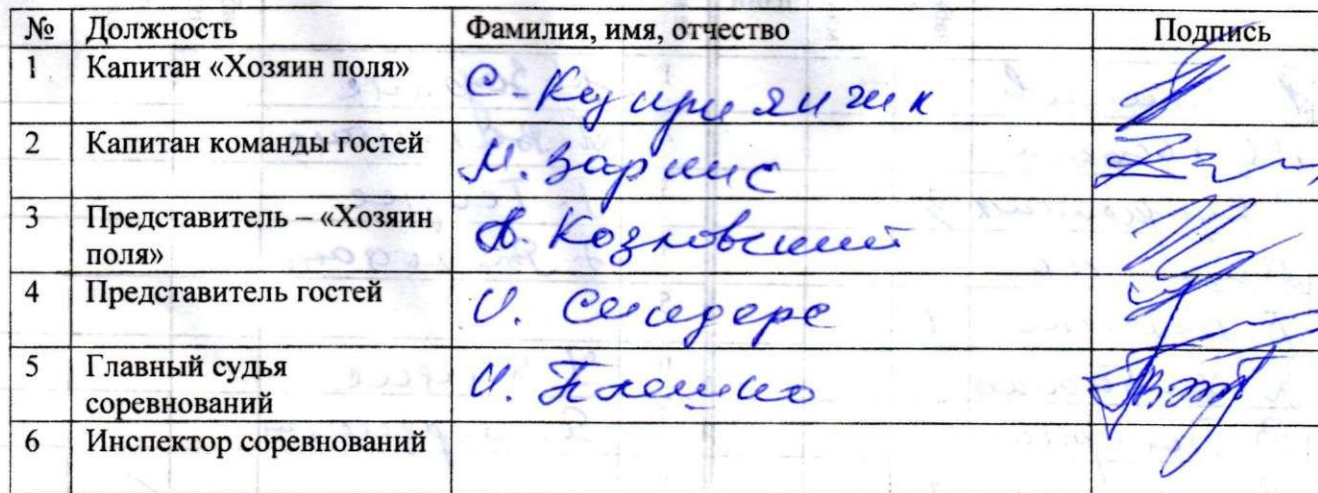 № Должность Фамилия, имя, отчество Подпись
1 Капитан «Хозяин поля» С. Куприянчик
2 Капитан команды гостей М. Зариис
3 Представитель – «Хозяин А. Козловский
поля»
4 Представитель гостей И. Сиидерс
5 Главный судья И. Плешко
соревнований
6 Инспектор соревнований